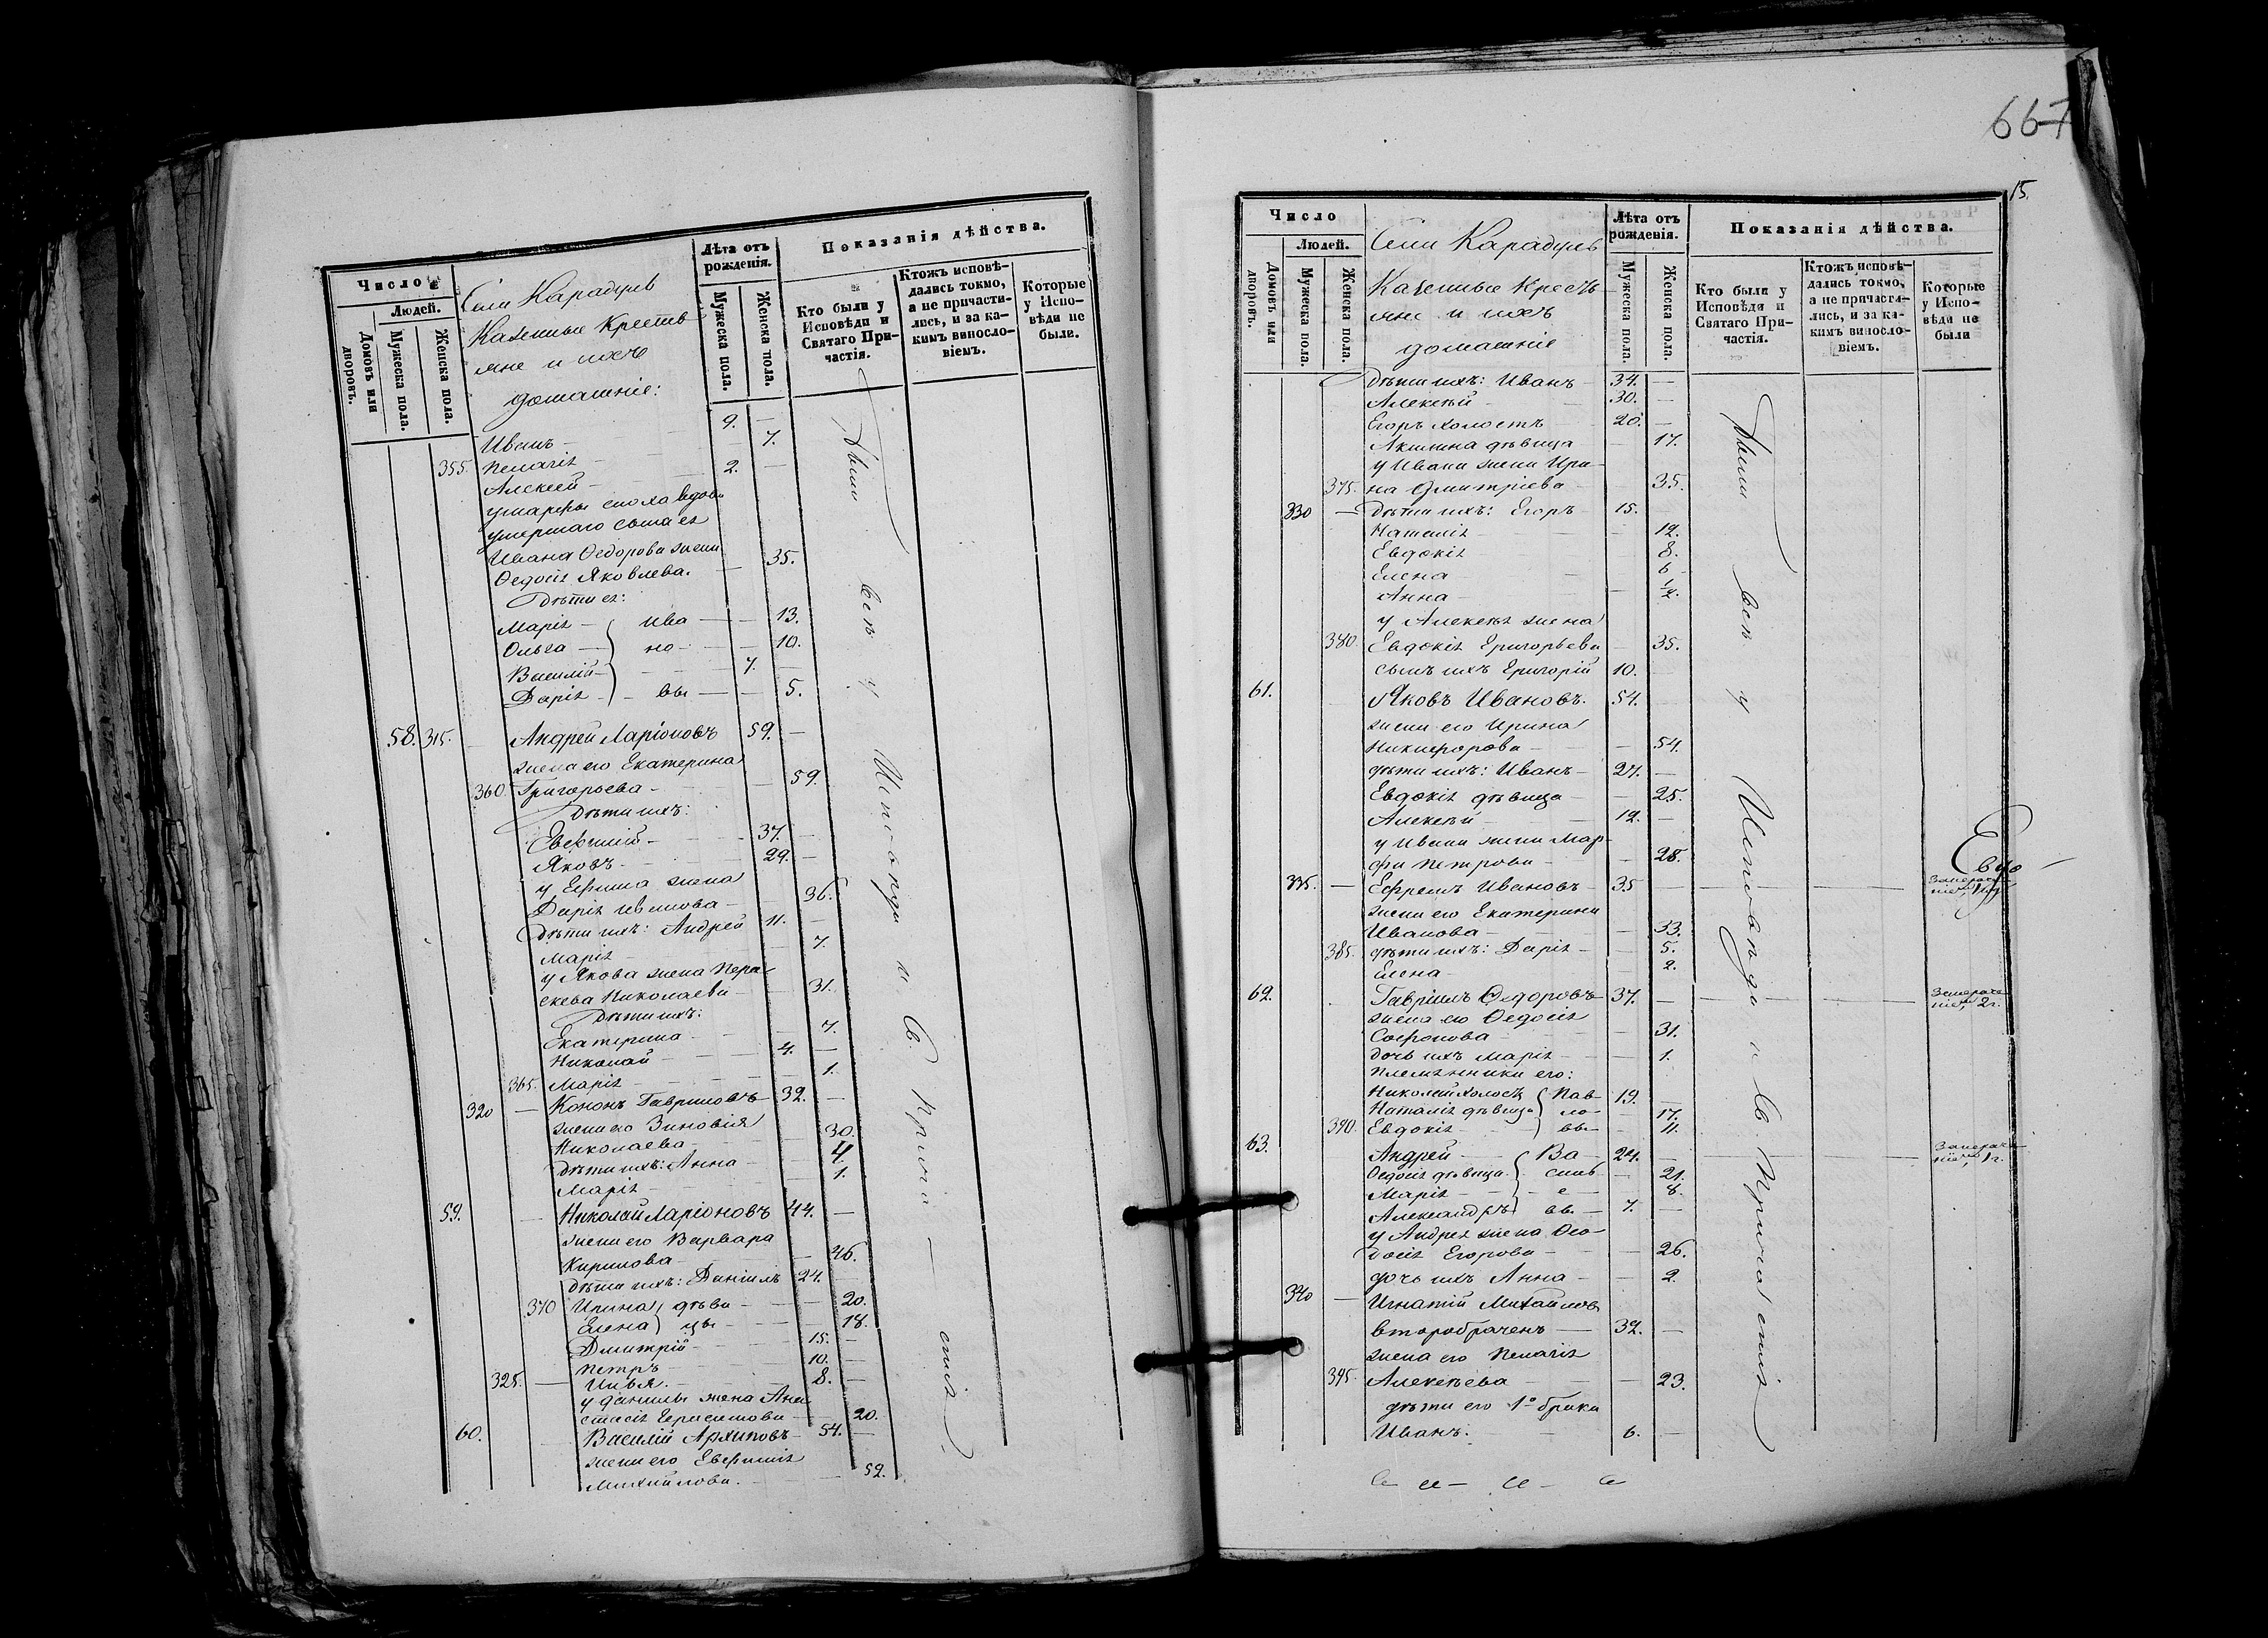 Число
Людей.
Домовъ или дворовъ.
Мужеска пола.
Женска пола.
Села Карадулъ
Казенные Крестья
яне и ихъ
домашніе:
Лѣта отъ рожденія.
Мужеска пола.
Женска пола.
Показанія дѣйства.
Кто были у Исповѣди и Святаго Причастія.
Ктожъ исповѣдались токмо, а не причастились, и за какимъ винословіемъ.
Которые у Исповѣди не были.
Иванъ 9. —
355. Пелагія — 7.
Алексей 2. —
умершаго сына ея
Ивана Ѳедорова жена
Ѳедосія Яковлева. — 35.
Дѣти ея:
Марія — Ива — 13.
Ольга — но — 10.
Василій 7. —
Дарія — вы — 5.
58. 315. Андрей Ларіоновъ 59. —
жена его Екатерина
360. Григорьева — 59.
Дѣти ихъ:
Евфимій 37. —
Яковъ 29. —
у Ефима жена
Дарія Иванова — 36.
Дѣти ихъ: Андрей 11. —
Марія — 7.
у Якова жена Пара
скева Николаева — 31.
Дѣти ихъ:
Екатерина — 7.
Николай 4. —
365. Марія — 1.
320 — Кононъ Гавриловъ 32. —
жена его Зиновія
Николаева — 30.
дѣти ихъ: Анна — 4.
Марія — 1.
59. — Николай Ларіоновъ 44. —
жена его Варвара
Кирилова — 46.
дѣти ихъ: Даніилъ 24. —
370 Ирина) дѣви — 20.
Елена) цы — 18.
Дмитрій 15. —
Петръ 10. —
325. — Илья. 8. —
у Данилы жена Ана
стасія Герасимова — 20.
60. Василій Архиповъ 54. —
жена его Евфимія
Михайлова. — 52.
Дѣти всѣ у Исповѣди и Св Прича — стія
667
15.
Число
Людей.
Домовъ или дворовъ.
Мужеска пола.
Женска пола.
Села Карадулъ
Казенные Кресть
яне и ихъ
домашніе
Лѣта отъ рожденія.
Мужеска пола.
Женска пола.
Показанія дѣйства.
Кто были у Исповѣди и Святаго Причастія.
Ктожъ исповѣдались токмо, а не причастились, и за какимъ винословіемъ.
Которые у Исповѣди не были
Дѣти ихъ: Иванъ 34. —
Алексѣй 30. —
Егоръ холостъ 20. —
Акилина дѣвица 17.
у Ивана жена Ири
375. на Дмитріева — 35.
330 — Дѣти ихъ: Егоръ 15. —
Наталія — 12.
Евдокія 8.
Елена 6
Анна — ½.
у Алексѣя жена
380. Евдокія Григорьева 35.
сынъ ихъ Григорій 10. —
61. Яковъ Ивановъ. 54.
жена его Ирина
Никифорова — 54.
дѣти ихъ: Иванъ 27. —
Евдокія дѣвица — 25.
Алексѣй 12. —
у Ивана жена Мар
фа Петрова — 28.
335. — Ефремъ Ивановъ 35
жена его Екатерина
Иванова — 33.
385. дѣти ихъ: Дарія — 5.
Елена — 2.
62. Гавріилъ Ѳедоровъ 37. —
жена его Ѳедосія
Софронова — 31.
дочь ихъ Марія — 1.
племянники его:
Николай холостъ Пав 19. —
Наталія дѣвица ло — 17.
390. Евдокія вы — 11.
63. Андрей Ва 24. —
Ѳедосія дѣвица силь 21.
Марія е 8.
Александръ вы 7. —
у Андрея жена Ѳео
досія Егорова — 26.
дочь ихъ Анна — 2.
340 — Игнатій Михайловъ
второбраченъ — 32. —
жена его Пелагія
395. Алексѣева — 23.
дѣти его 1º брака
Иванъ. 6. —
Дѣти всѣ у Исповѣди и Св Причастія